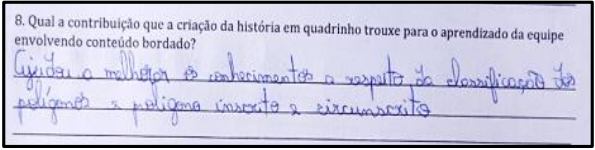 8. Qual a contribuição que a criação da história em quadrinho trouxe para o aprendizado da equipe
envolvendo conteúdo bordado?
Ajudou a melhorar os conhecimentos a respeito da classificação dos
polígonos e polígono inscrito e circunscrito